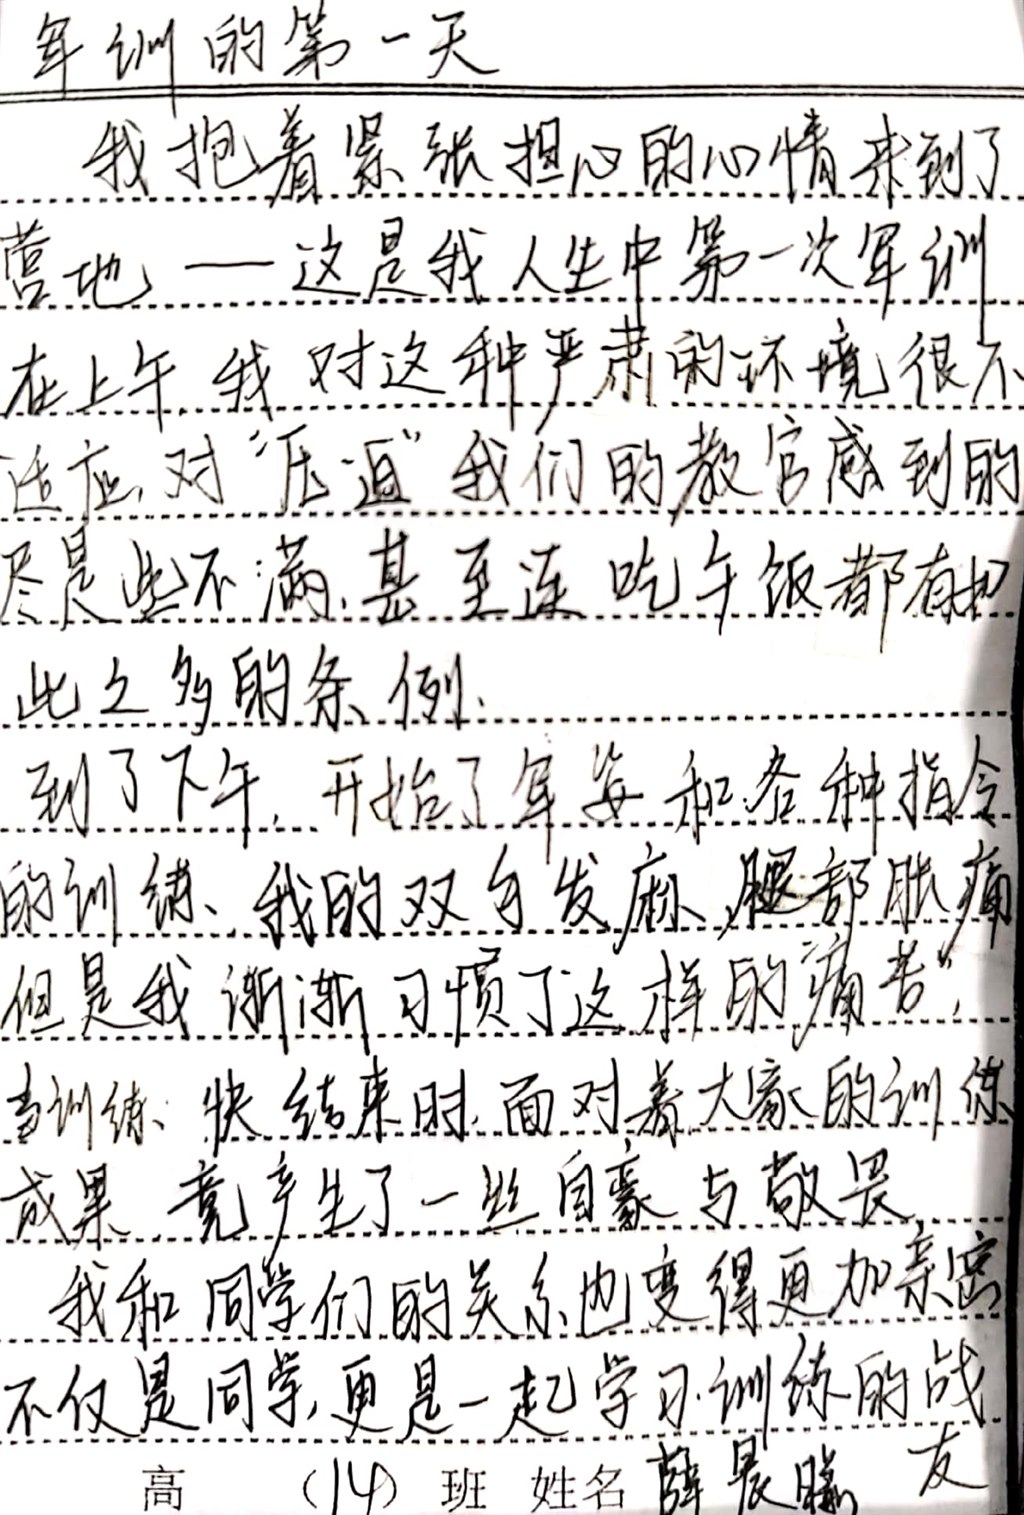 军训的第一天
我抱着紧张担心的心情来到了
营地——这是我人生中第一次军训
在上午,我对这种严肃的环境很不
适应,对“压迫”我们的教官感到的
尽是些不满,甚至连吃午饭都有如
此之多的条例.
到了下午,开始了军姿和各种指令
的训练、我的双手发麻、腿部胀痛
但是我渐渐习惯了这样的“痛苦”,
当训练快结束时,面对着大家的训练
成果,竟产生了一丝自豪与敬畏,
我和同学们的关系也变得更加亲密
不仅是同学,更是一起学习训练的战
友
高 (14) 班 姓名 薛晨曦